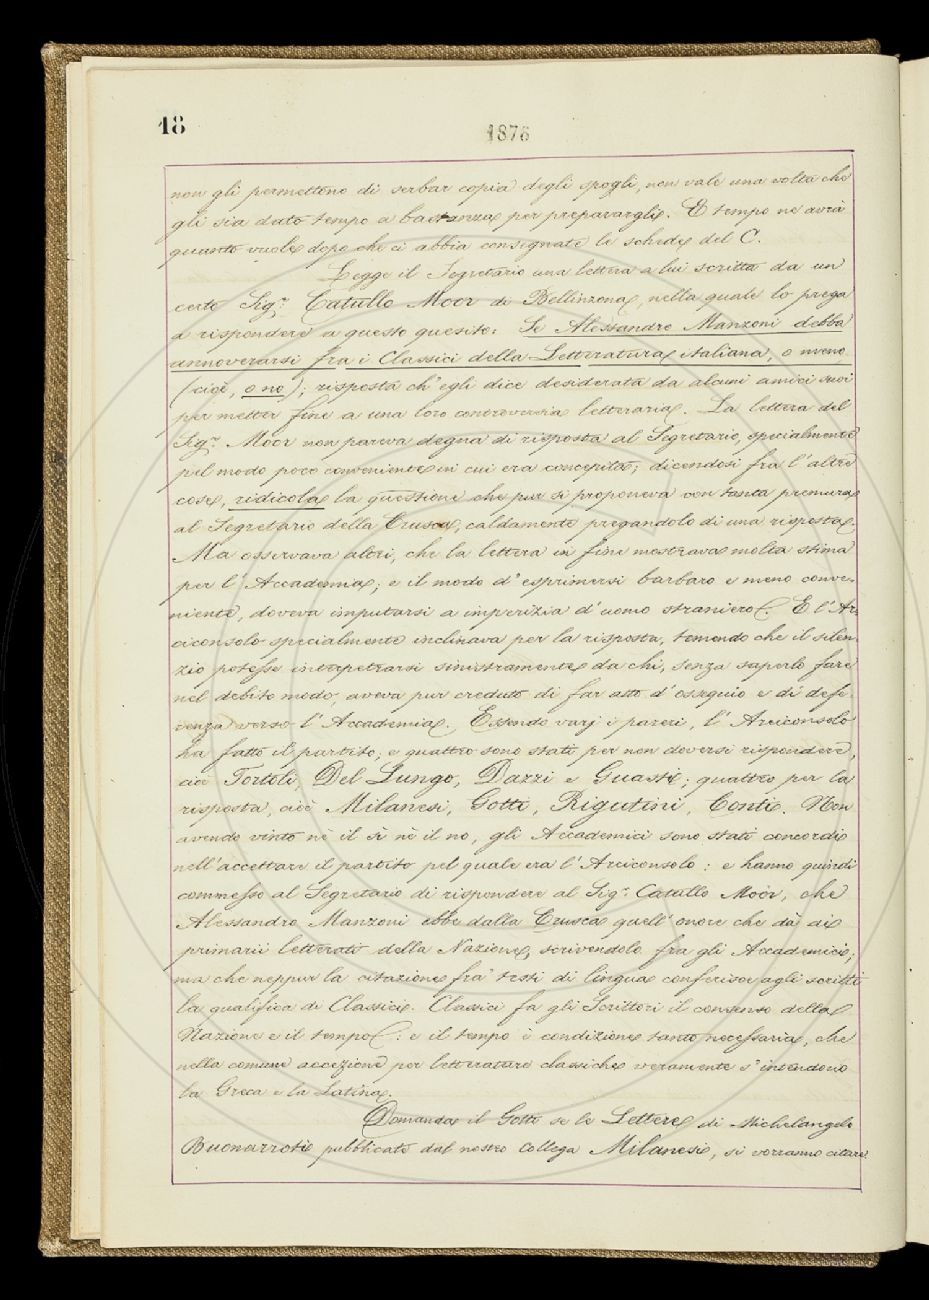 18
1876
non gli permettono di serbar copia degli spogli, non vale una volta che
gli sia dato tempo a bastanza per prepararglie. E tempo ne avrà
quanto vuole dopo che ci abbia consegnate le schede del C.
Legge il Segretario una lettera a lui scritta da un
certo Sig.r Catullo Moor di Bellinzona, nella quale lo prega
a rispondere a questo quesito: Se Alessandro Manzoni debba
annoverarsi fra i Classici della Letteratura italiana, o meno
(cioè, o no); risposta ch'egli dice desiderata da alcuni amici suoi
per metter fine a una loro controversia letteraria. La lettera del
Sig.r Moor non pareva degna di risposta al Segretario, specialmente
pel modo poco conveniente in cui era concepita; dicendosi fra l'altre
cose, ridicola la questione che pur si proponeva con tanta premura
al Segretario della Crusca, caldamente pregandolo di una risposta.
Ma osservava altri, che la lettera in fine mostrava molta stima
per l'Accademia; e il modo d'esprimersi barbaro e meno conve-
niente, doveva imputarsi a imperizia d'uomo straniero. E l'Ar-
ciconsolo specialmente inclinava per la risposta, temendo che il silen-
zio potesse interpetrarsi sinistramente da chi, senza saperlo fare
nel debito modo, aveva pur creduto di far atto d'ossequio e di defe-
renza verso l'Accademia. Essendo varj i pareri, l'Arciconsolo
ha fatto il partito, e quattro sono stati per non doversi rispondere,
cioè Tortoli, Del Lungo, Dazzi e Guasti; quattro per la
risposta, cioè Milanesi, Gotti, Rigutini, Conti. Non
avendo vinto nè il sì nè il no, gli Accademici sono stati concordi
nell'accettare il partito pel quale era l'Arciconsolo: e hanno quindi
commesso al Segretario di rispondere al Sig.r Catullo Moòr, che
Alessandro Manzoni ebbe dalla Crusca quell'onore che dà ai
primarii letterati della Nazione, scrivendolo fra gli Accademici;
ma che neppur la citazione fra' testi di lingua conferisce agli scritti
la qualifica di Classici. Classici fa gli Scrittori il consenso della
Nazione e il tempo: e il tempo è condizione tanto necessaria, che
nella comune accezione per letterature classiche veramente s'intendono
la Greca e la Latina.
Domanda il Gotti se le Lettere di Michelangelo
Buonarroti pubblicate dal nostro Collega Milanesi, si vorranno citare